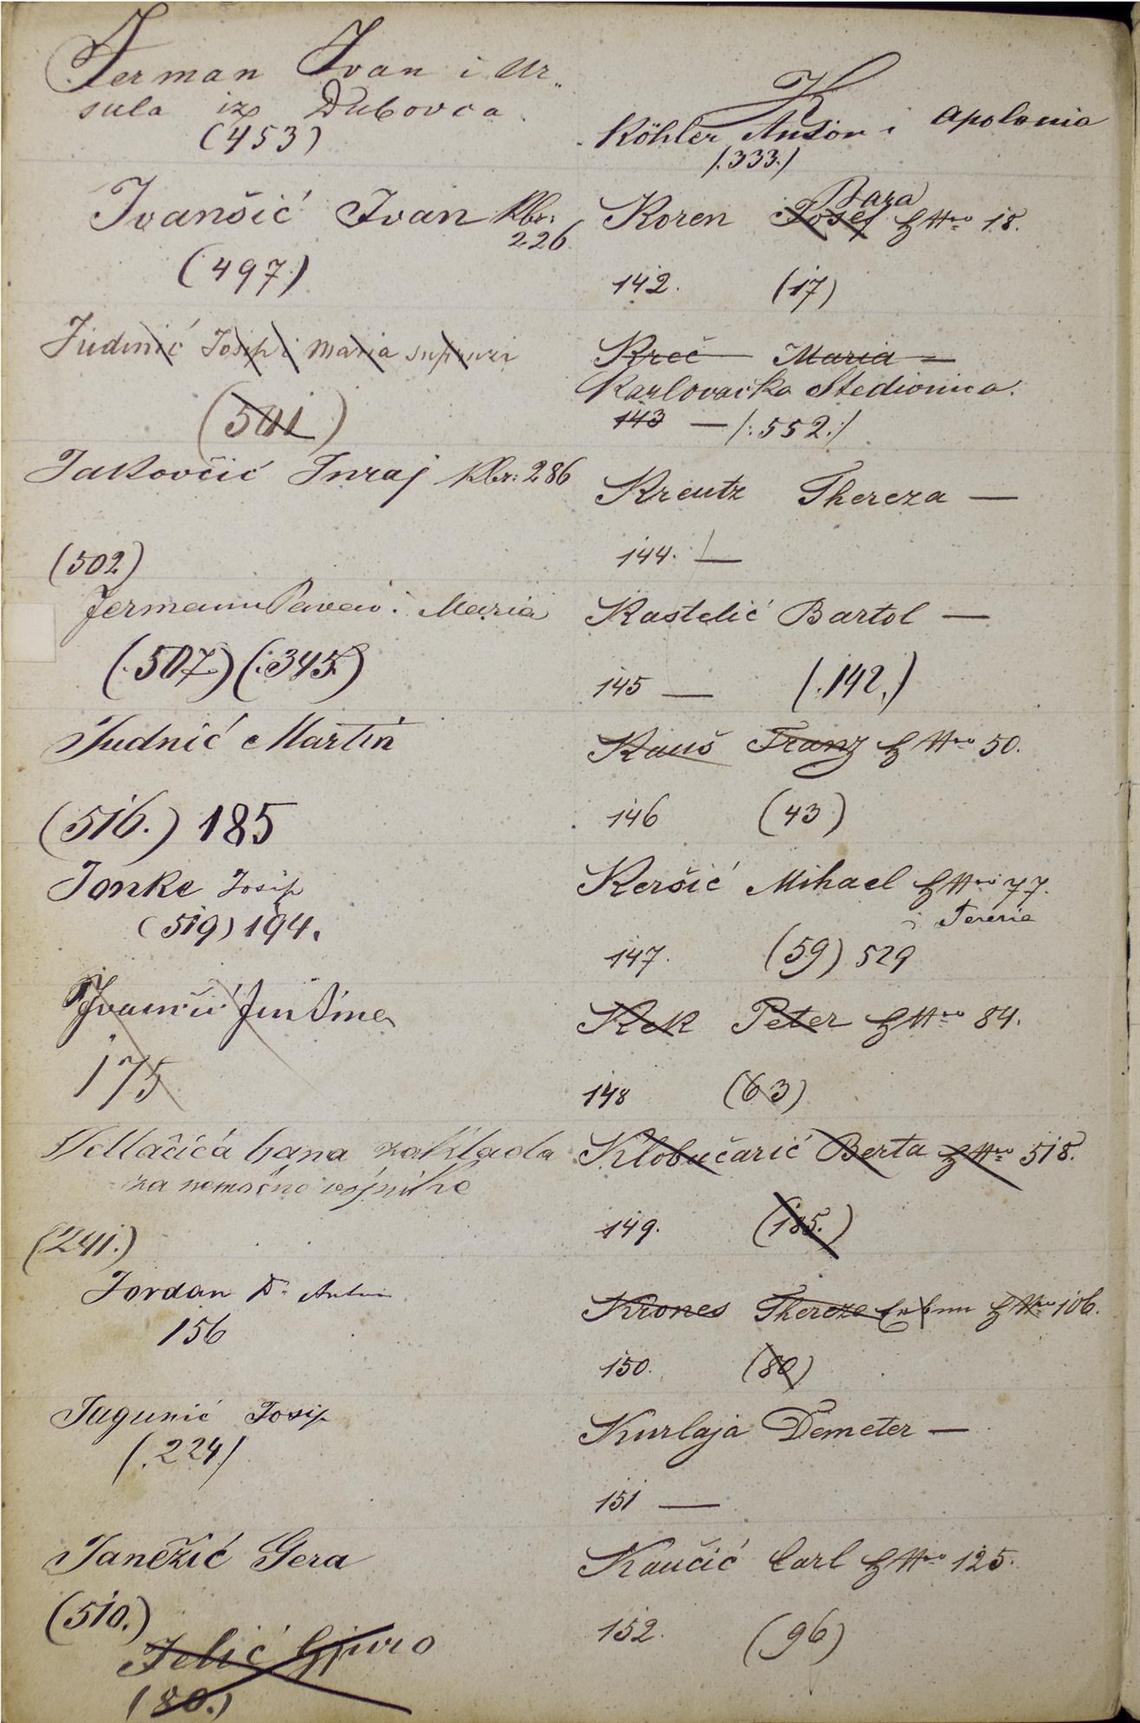 Jerman Ivan i Ur-
sula iz Dubovca
(453)
Ivanšić Ivan Kbr:
226
(497)
Judnić Josip i Maria supruzi
(501)
Jakovčić Juraj kbr: 286
(502)
Jermann i Maria
(507.) (345.)
Judnić Martin
(516.) 185
Jonke Josip
(519) 194.
175
Jellačića bana zaklada
za nemoćne
(241.)
Jordan Dr. Antun
156
Jagunić Josip
(.224)
Janežić Gera
(510.)
Jelić Gjuro
(80.)
K
Köhler Anton i Apolonia
(.333.)
Bara
Koren Josef HNro 18.
142. (17)
Kreč Maria —
Karlovačka Štedionica.
143 — (:552:)
Kreutz Thereza —
144. —
Kastelić Bartol —
145 — (.142.)
Kauš Franz HNro 50.
146 (43)
Keršić Mihael HNro 77.
i Terezia
147. (59) 529
Kek Peter HNro 84.
148 (63)
Klobučarić Berta HNro 518.
149. (185.)
Krones Thereze Erben HNro 106.
150. (80)
Kurlaja Demeter —
151 —
Kaučić Carl HNro 125.
152. (96)